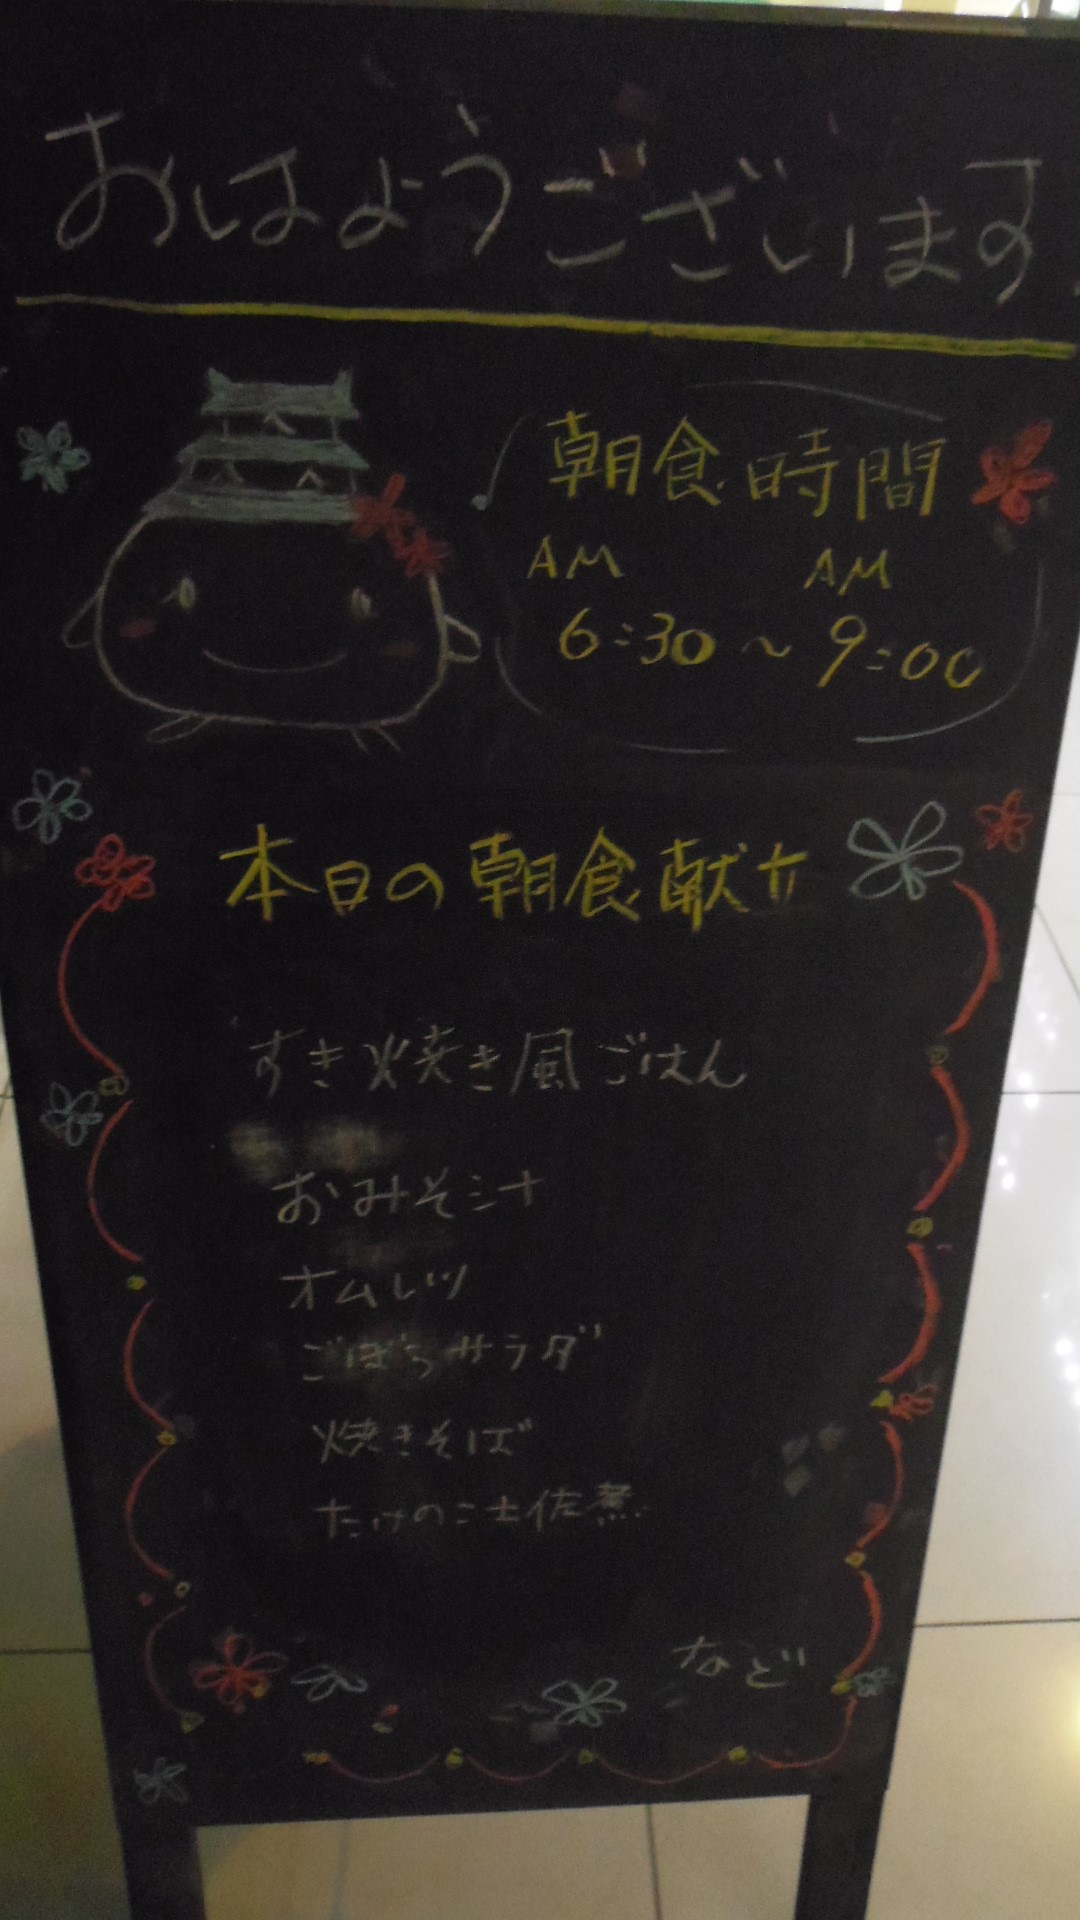 おはようございます
朝食時間
AM AM
6:30～9:00
本日の朝食献立
すき焼き風ごはん
おみそ汁
オムレツ
ごぼうサラダ
焼きそば
たけのこ土佐煮
など